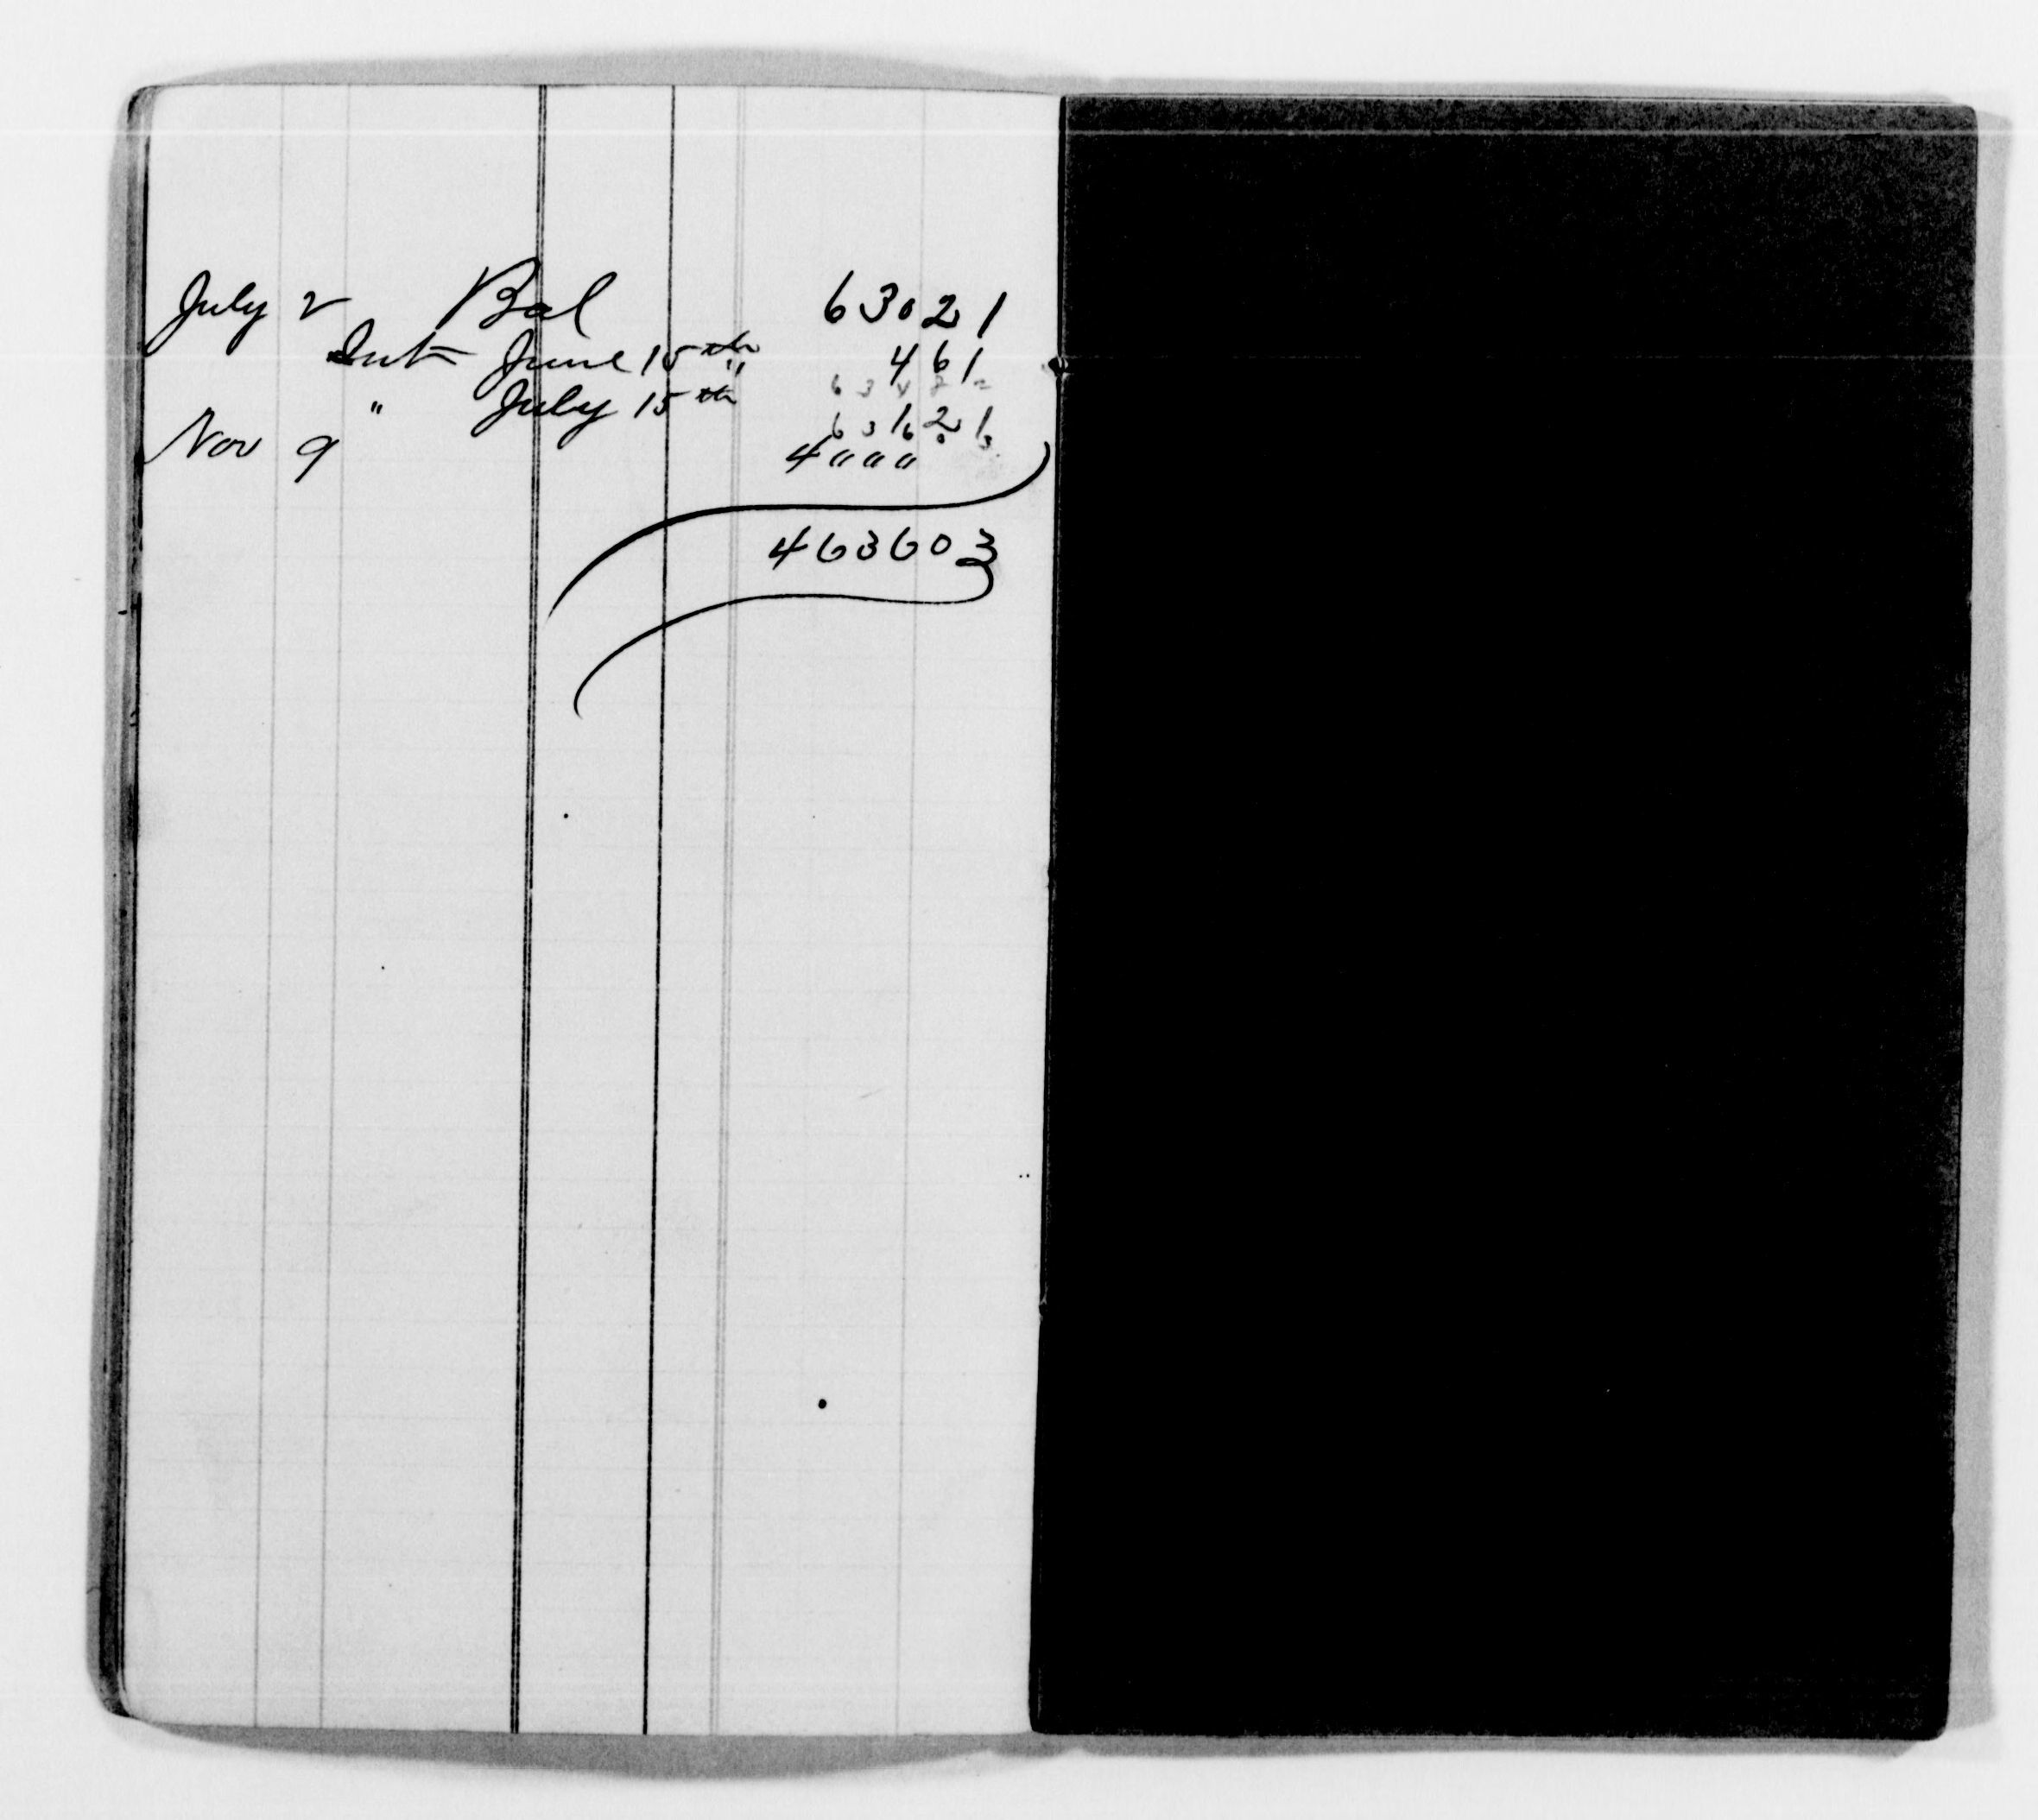 July 2 Bal 63021
Int June 15th " 461
63482
" July 15th 121
63603
Nov 9 4"""
463603